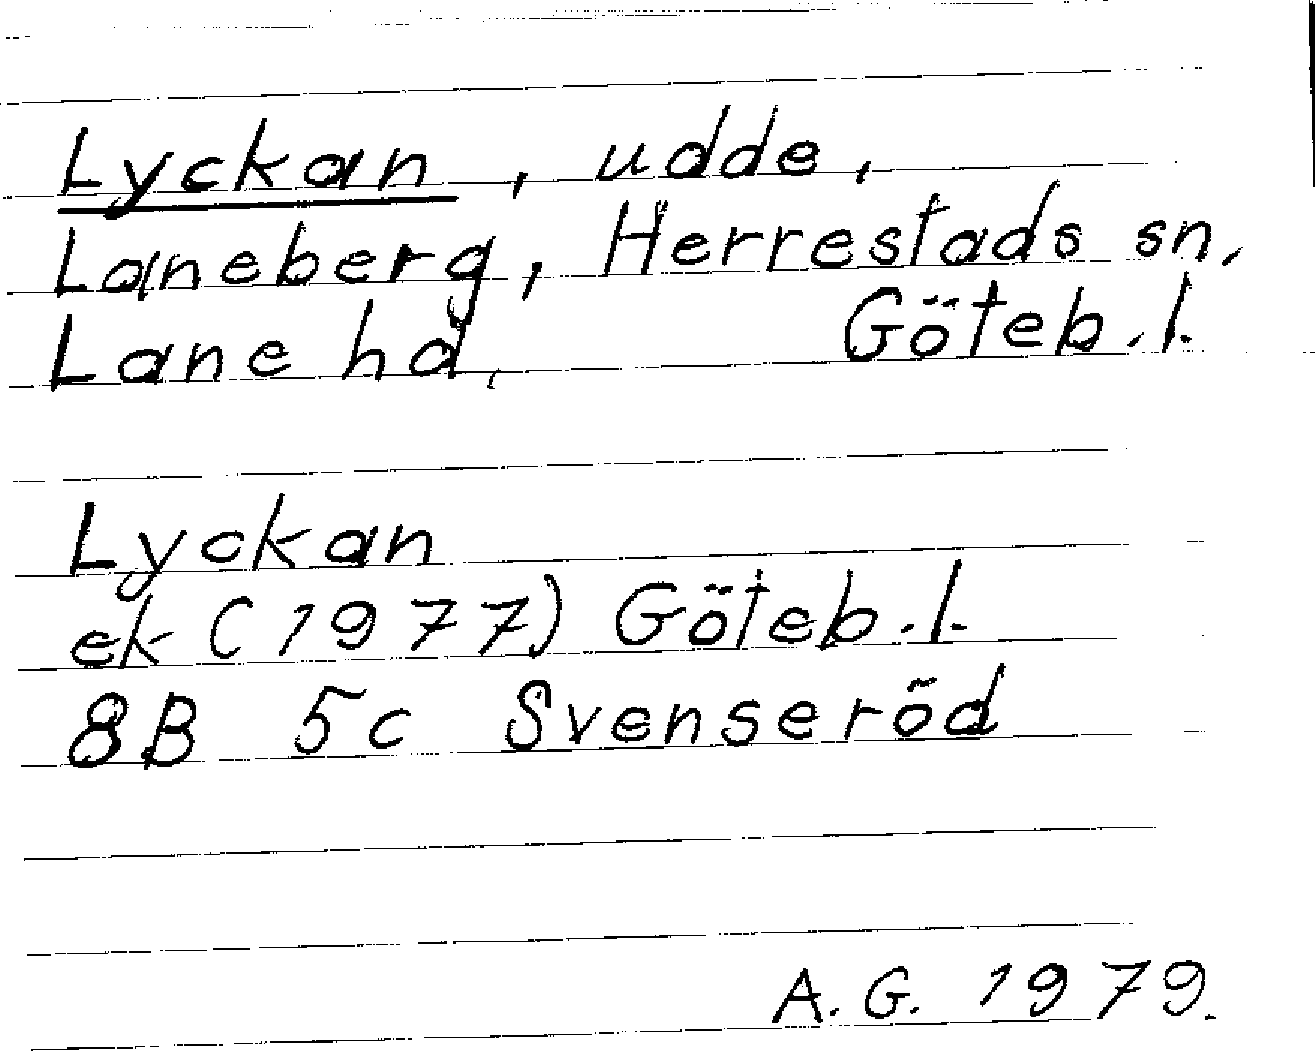 Lyckan, udde,
Laneberg, Herrestads sn,
Lane hd, Göteb. l.
Lyckan
ek (1977) Göteb. l.
8B 5c Svenseröd
A. G. 1979.